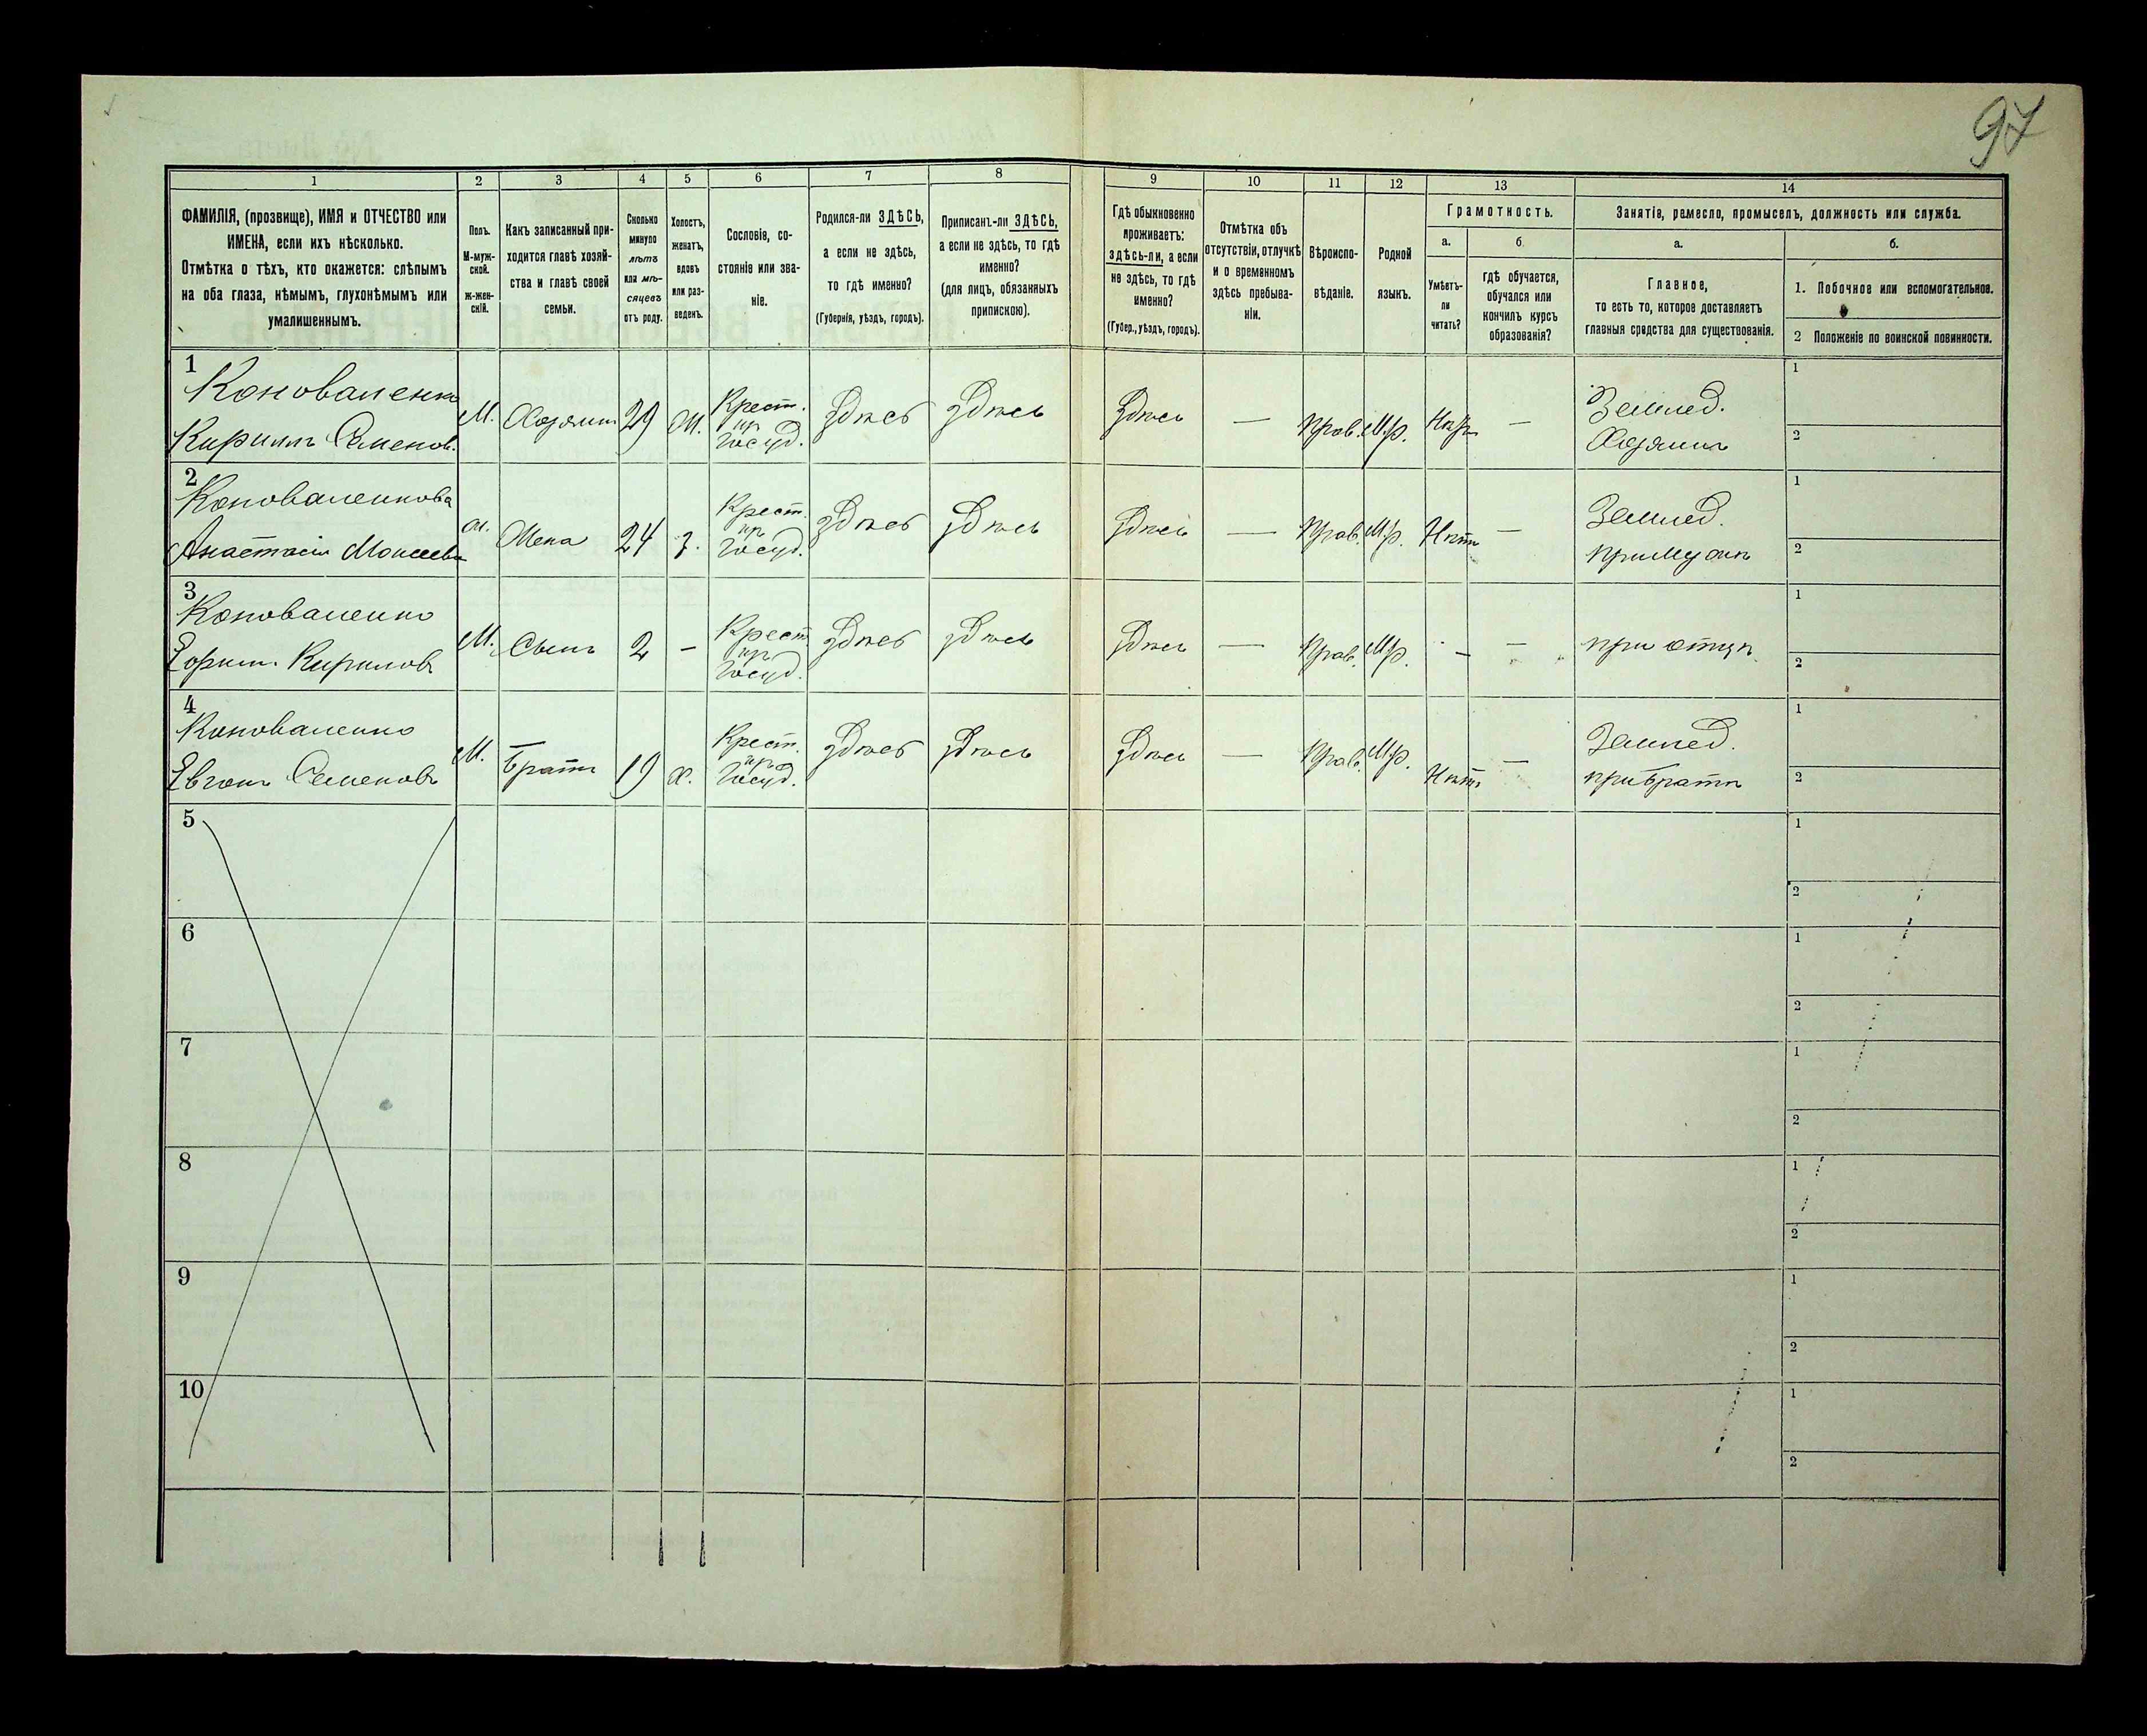 97
1
2
3
4
5
6
7
8
9
10
11
12
13
14
ФАМИЛІЯ, (прозвище), ИМЯ и ОТЧЕСТВО или
ИМЕНА, если ихъ нѣсколько.
Отмѣтка о тѣхъ, кто окажется: слѣпымъ
на оба глаза, нѣмымъ, глухонѣмымъ или
умалишеннымъ.
Полъ.
М-муж-
ской.
ж-жен-
скій.
Какъ записанный при-
ходится главѣ хозяй-
ства и главѣ своей
семьи.
Сколько
минуло
лѣтъ
или мѣ-
сяцевъ
отъ роду.
Холостъ,
женатъ,
вдовъ
или раз-
веденъ.
Сословіе, со-
стояніе или зва-
ніе.
Родился-ли ЗДѢСЬ,
а если не здѣсь,
то гдѣ именно?
(Губернія, уѣздъ, городъ).
Приписанъ-ли ЗДѢСЬ,
а если не здѣсь, то гдѣ
именно?
(для лицъ, обязанныхъ
припискою).
Гдѣ обыкновенно
проживаетъ:
здѣсь-ли, а если
не здѣсь, то гдѣ
именно?
(Губер., уѣздъ, городъ).
Отмѣтка объ
отсутствіи, отлучкѣ
и о временномъ
здѣсь пребыва-
ніи.
Вѣроиспо-
вѣданіе.
Родной
языкъ.
Грамотность.
а.
Умѣетъ-
ли
читать?
б.
гдѣ обучается,
обучался или
кончилъ курсъ
образованія?
Занятіе, ремесло, промыселъ, должность или служба.
а.
Главное,
то есть то, которое доставляетъ
главныя средства для существованія.
б.
1. Побочное или вспомогательное.
2 Положеніе по воинской повинности.
1
Коноваленко
Кирилъ Семенов.
М.
Хозяинъ
29
Ж.
Крест.
пр
Госуд.
Здѣсь
здѣсь
Здѣсь
—
Прав.
М.р.
Нѣтъ
—
Землед.
Хозяинъ
1
2
2
Коноваленкова
Анастасія Моисеева
Ж.
Жена
24
З.
Крест.
пр
Госуд.
здѣсь
здѣсь
здѣсь
—
Прав.
М.р.
Нѣтъ
—
Землед.
при мужѣ
1
2
3
Коноваленко
Кириловъ
М.
Сынъ
2
–
Крест
пр
Госуд.
здѣсь
здѣсь
здѣсь
—
Прав.
М.р.
–
—
при отцѣ
1
2
4
Коноваленко
Семеновъ
М.
Братъ
19
х.
Крест.
пр
Госуд.
здѣсь
здѣсь
здѣсь
—
Прав.
М.р.
Нѣтъ
—
Землед.
при братѣ
1
2
5
1
2
6
1
2
7
1
2
8
1
2
9
1
2
10
1
2